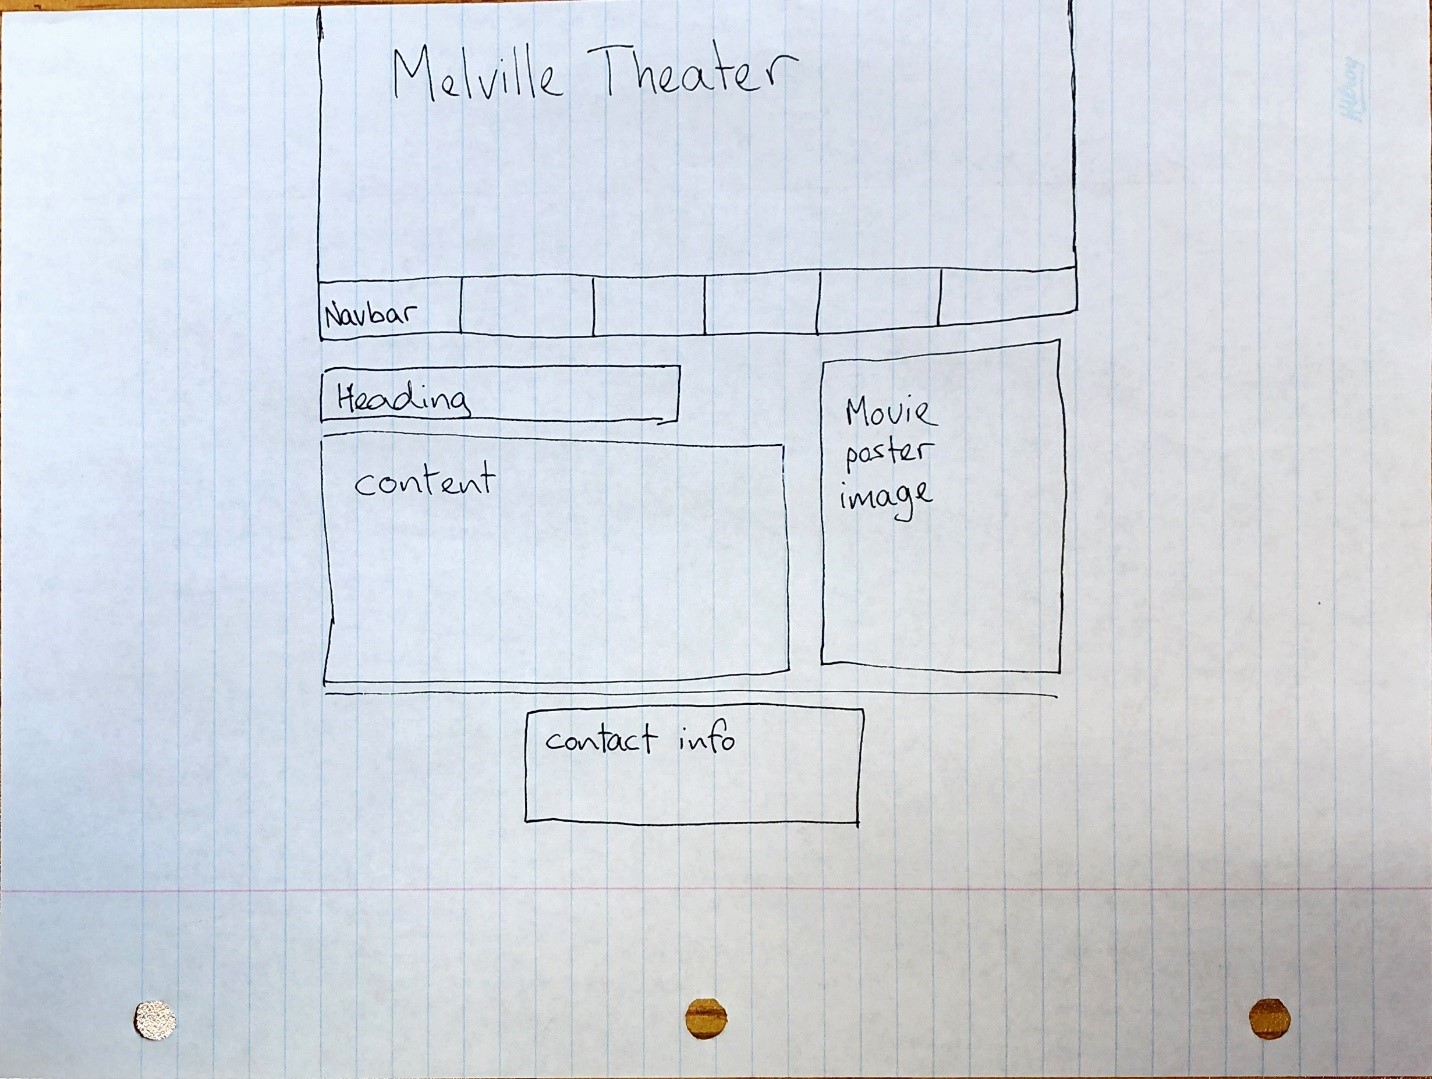 Melville Theater
Navbar
Heading
content
Movie
poster
image
contact info
Hilroy